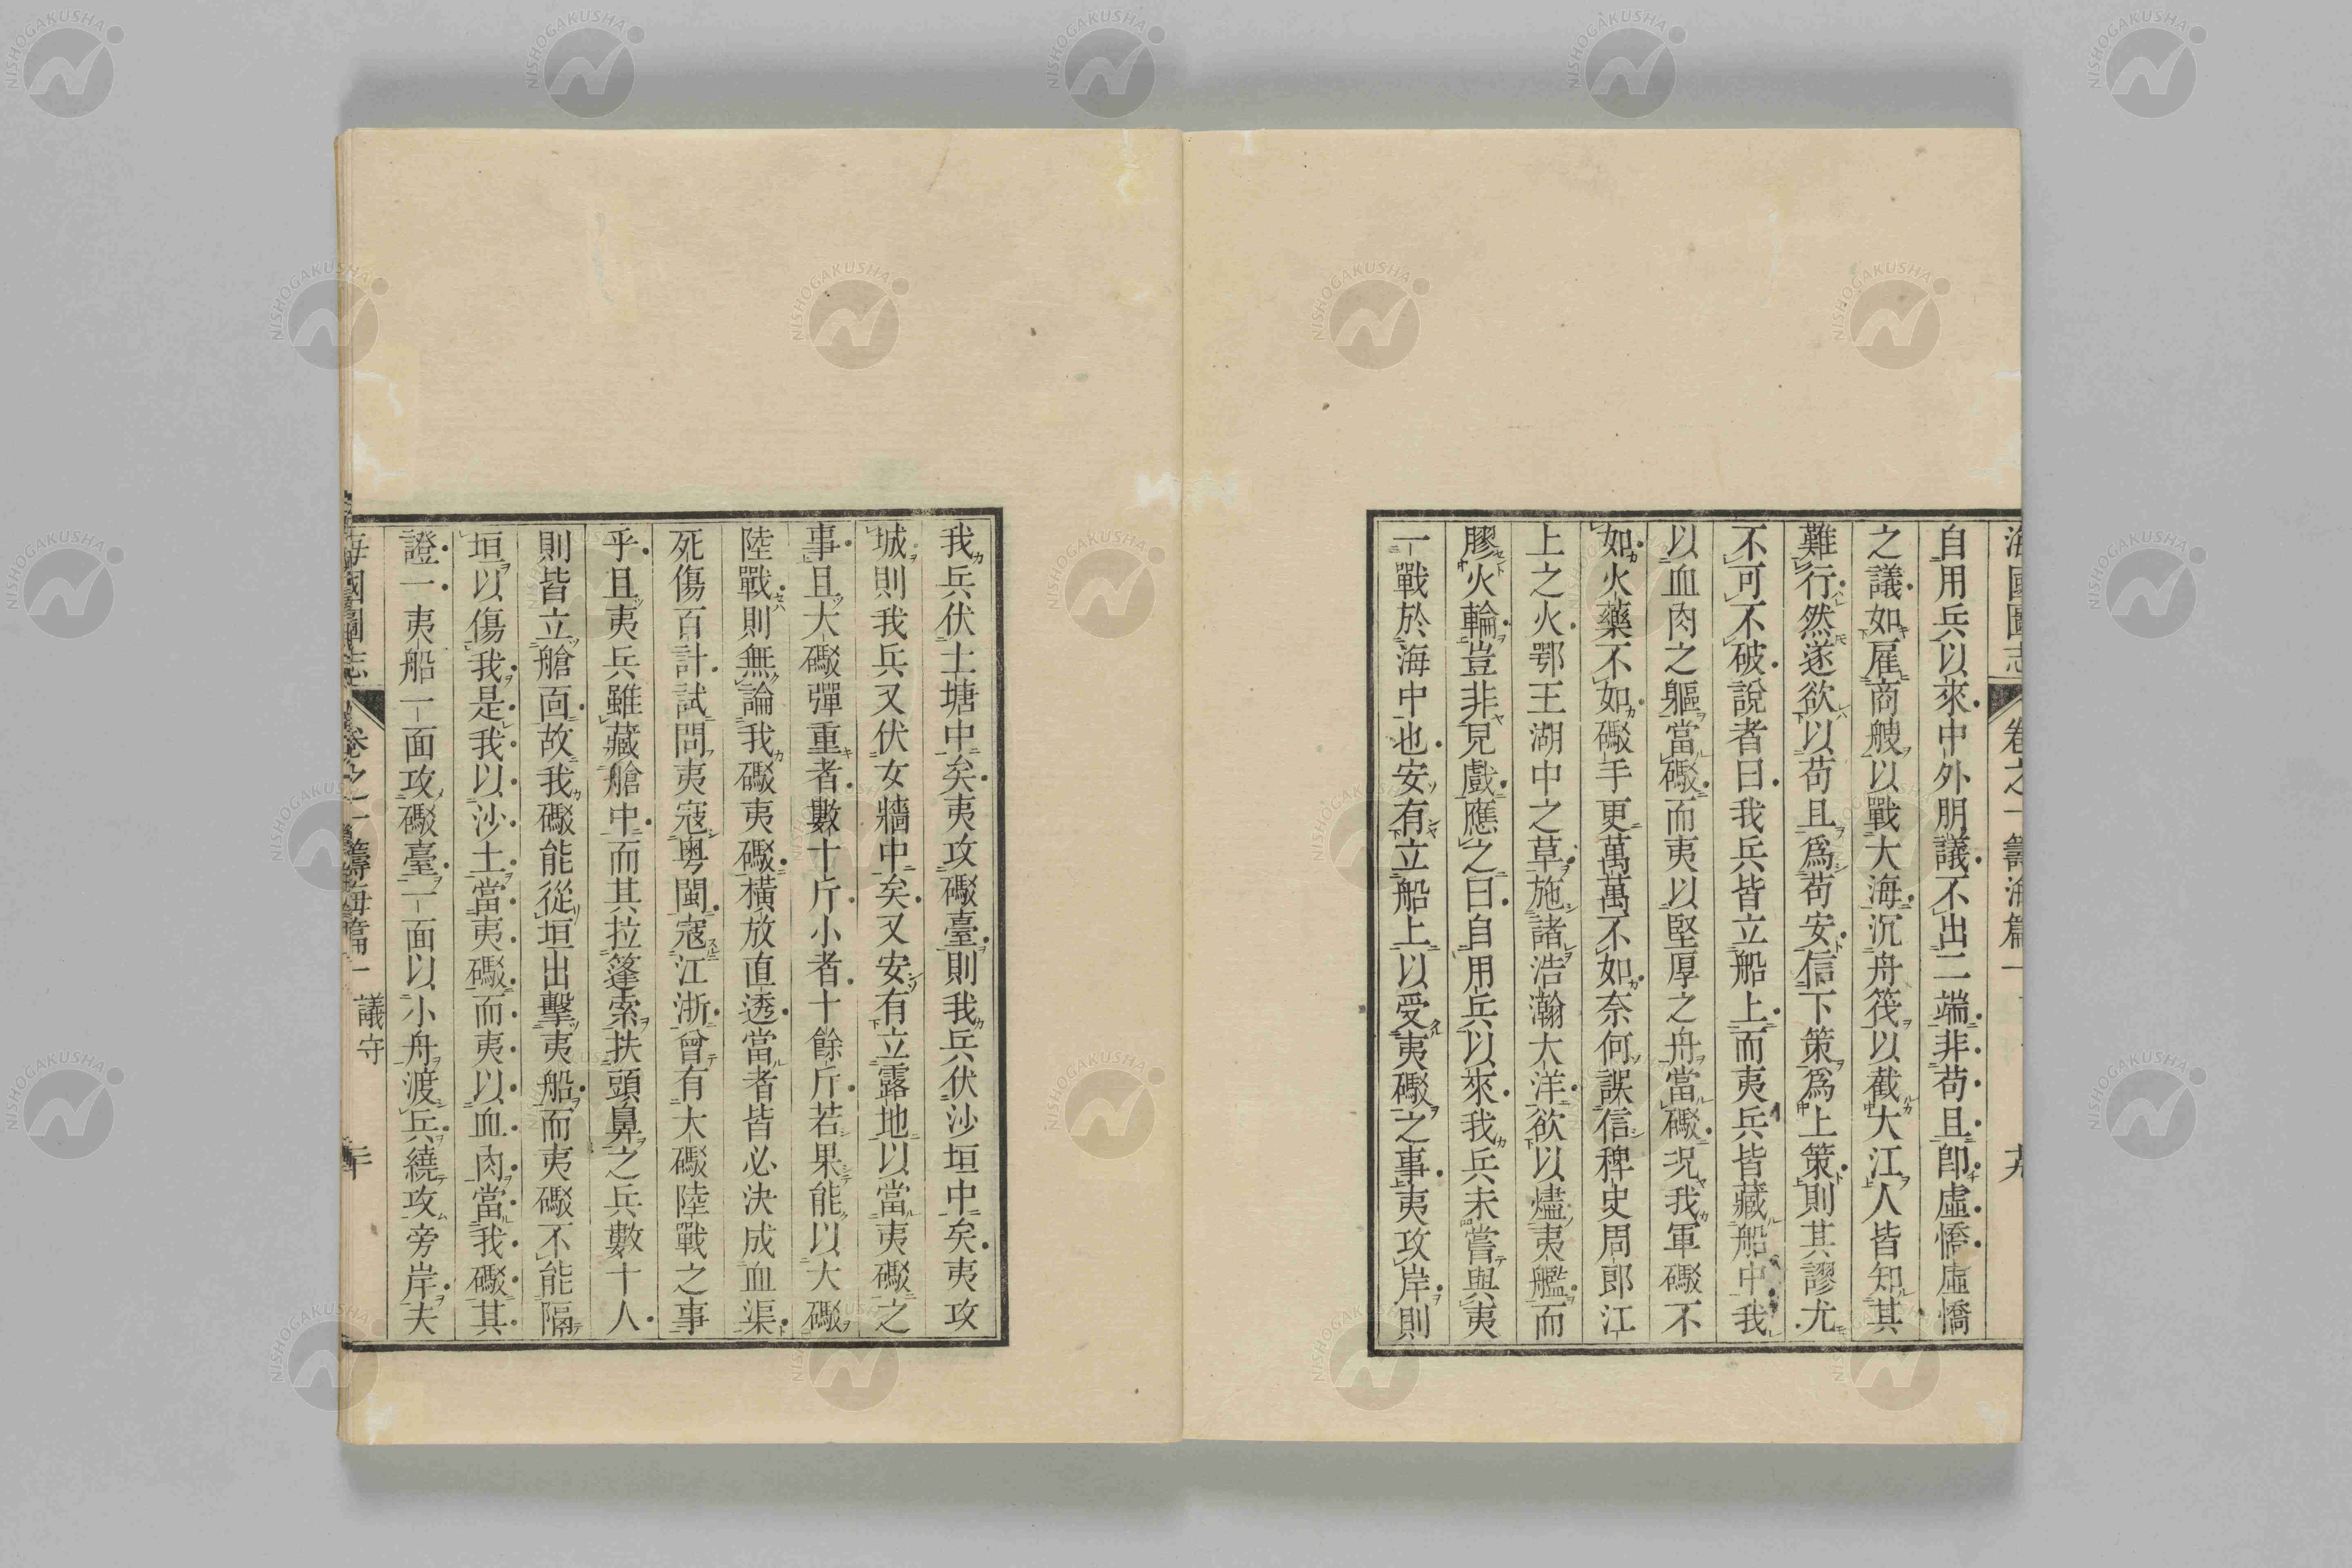 海國圖志 卷之一 籌海篇一 十九
自用兵以來中外朋議不出二端非苟且卽虛憍虛憍
之議如雇商艘以戰大海沉舟筏以截大江人皆知其
難行然遂欲以苟且爲苟安信下策爲上策則其謬尤
不可不破說者曰我兵皆立船上而夷兵皆藏船中我
以血肉之軀當礮而夷以堅厚之舟當礮况我軍礮不
如火藥不如礮手更萬萬不如奈何誤信稗史周郎江
上之火鄂王湖中之草施諸浩瀚大洋欲以燼夷艦而
膠火輪豈非兒戲應之曰自用兵以來我兵未嘗與夷
一戰於海中也安有立船上以受夷礮之事夷攻岸則
我兵伏土塘中矣夷攻礮臺則我兵伏沙垣中矣夷攻
城則我兵又伏女牆中矣又安有立露地以當夷礮之
事且大礮彈重者數十斤小者十餘斤若果能以大礮
陸戰則無論我礮夷礮橫放直透當者皆必決成血渠
死傷百計試問夷寇粵閩寇江浙曾有大礮陸戰之事
乎且夷兵雖藏艙中而其拉篷索扶頭鼻之兵數十人
則皆立艙面故我礮能從垣出擊夷船而夷礮不能隔
垣以傷我是我以沙土當夷礮而夷以血肉當我礮其
證一夷船一面攻礮臺一面以小舟渡兵繞攻旁岸夫
海國圖志 卷之一 籌海篇一 議守 二十
NISHOGAKUSHA